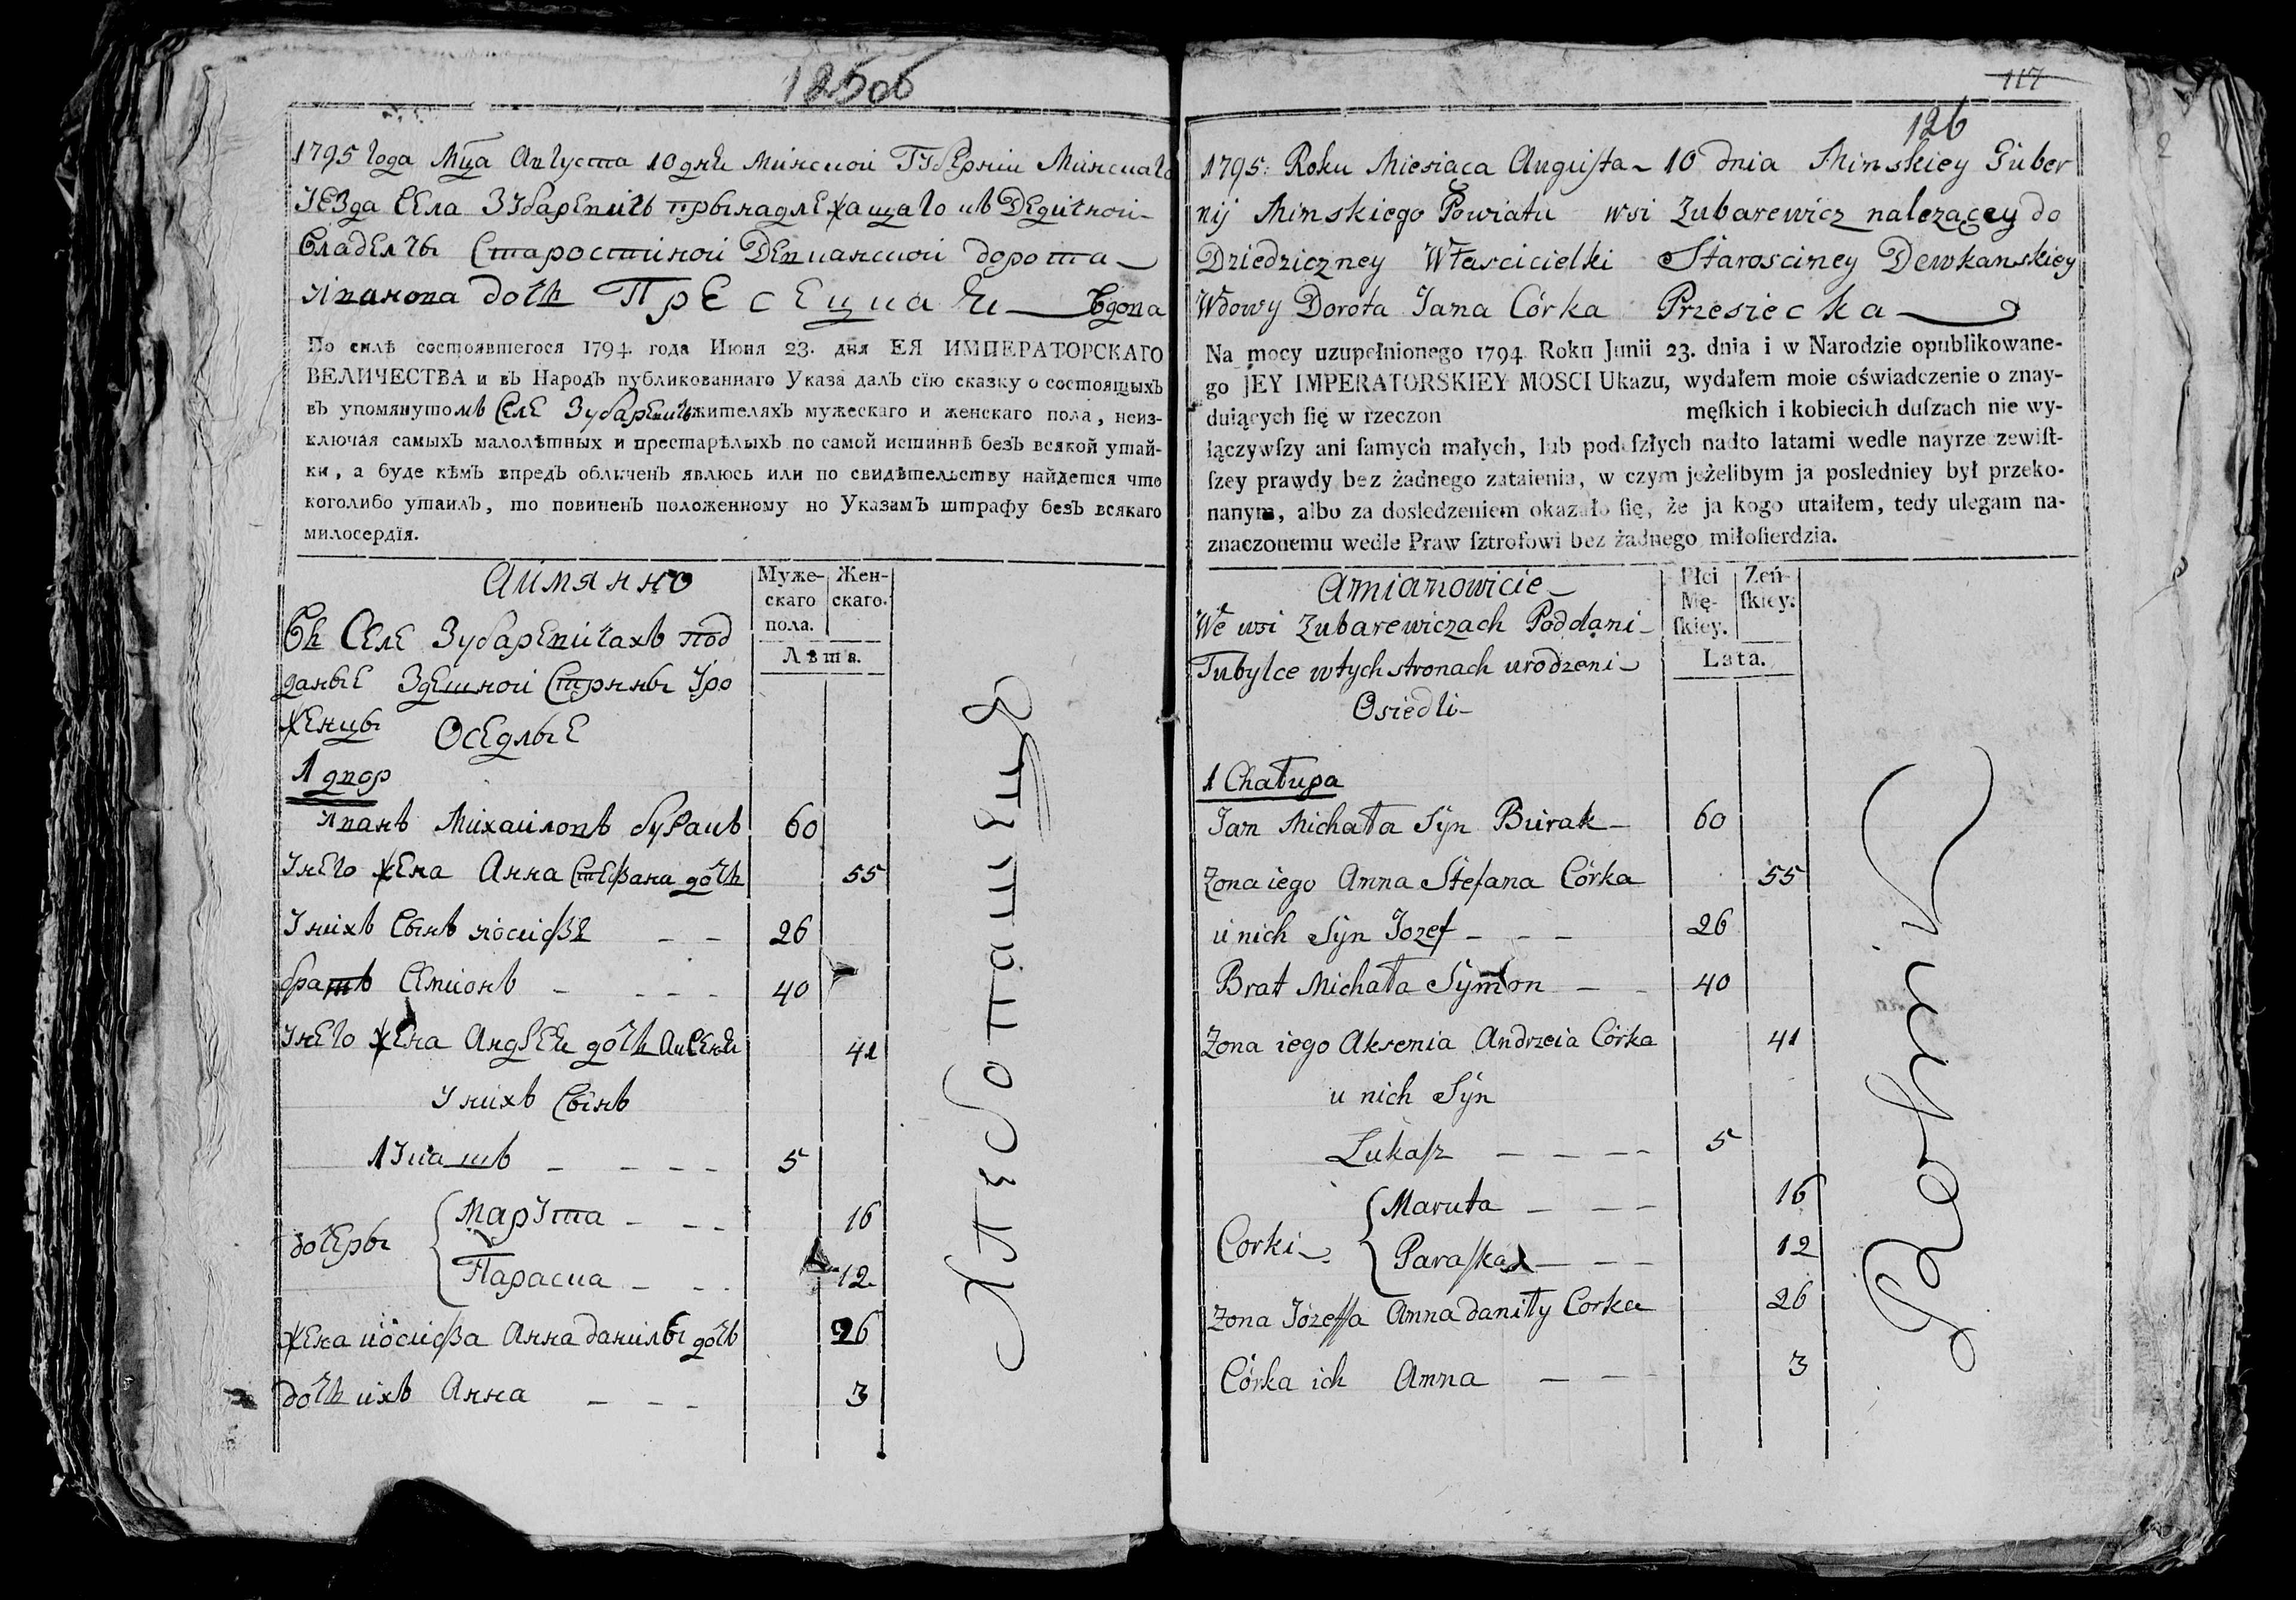 125об
1795 года Мца Августа 10 дня Минской Губерніи Минскаго
Уезда Села Зубаревичь прынадлежащаго къ Дедичной
Владелчы Старостиной Девканской дорота
Иванова дочь Пресецкая вдова
По силѣ состоявшегося 1794 года Июня 23. дня ЕЯ ИМПЕРАТОРСКАГО
ВЕЛИЧЕСТВА и въ Народъ публикованнаго Указа далъ сїю сказку о состоящыхъ
въ упомянутомъ Селе Зубаревичь жителяхъ мужескаго и женскаго пола, неиз-
ключая самыхъ малолѣтныхъ и престарѣлыхъ по самой истиннѣ безъ всякой утай-
ки, а буде кѣмъ впредь обличенъ явлюсь или по свидѣтельству найдется что
коголибо утаилъ, то повиненъ положенному по Указамъ штрафу безъ всякаго
милосердїя.
Аимянно
Муже-
скаго
пола.
Жен-
скаго.
Лѣта.
Въ Селе Зубаревичахъ под
даные Здешной Строны Уро
женцы Оседлые
1 двор
Иванъ Михаиловъ буракъ 60
Унего жена Анна Стефана дочь 55
Унихъ Сынъ иосифъ – – 26
братъ Семионъ – – – – 40
Унего жена Андрея дочь Аксеня 41
Унихъ Сынъ
Лукашъ – – – – 5
дочеры
Марута – – – 16
Параска – – – 12
жена иосифа Анна данилы дочь 26
дочь ихъ Анна – – – 3
117
126
1795: Roku Miesiąca Augusta 10 dnia Minskiey Guber
nij Minskiego Powiatu wsi Zubarewicz nalezącey do
Dziedziczney Własccicielki Starosciney Dewkanskiey
Wdowy Dorota Jana Córka Przesiecka
Na mocy uzupełnionego 1794 Roku Junii 23. dnia i w Narodzie opublikowane-
go JEY IMPERATORSKIEY MOSCI Ukazu, wydałem moie oświadczenie o znay-
duiących ſię w rzeczon męſkich i kobiecich duſzach nie wy-
łączywſzy ani ſamych małych, lub podeſzłych nadto latami wedle nayrze zewiſt-
ſzey prawdy bez żadnego zataienia, w czym jeżelibym ja posledniey był przeko-
nanym, albo za dosledzeniem okazało ſię, że ja kogo utaiłem, tedy ulegam na-
znaczonemu wedle Praw ſztrofowi bez żadnego miłoſierdzia.
Amianowicie
Płci
Mę-
ſkiey.
Zeń-
ſkiey.
Lata.
We wsi Zubarewiczach Poddani
Tubylce wtych stronach urodzeni
Osiedli
1 Chałupa
Jan Michała Syn Burak 60
Zona iego Anna Stefana Córka 55
u nich Syn Jozef – – – 26
Brat Michała Symon – – 40
Zona iego Aksenia Andrzeia Córka 41
u nich Syn
Łukaſz – – – – 5
Corki
Maruta – – – 16
Paraſka – – – 12
Zona Józeffa Anna daniły Corka 26
Córka ich Anna – – – 3